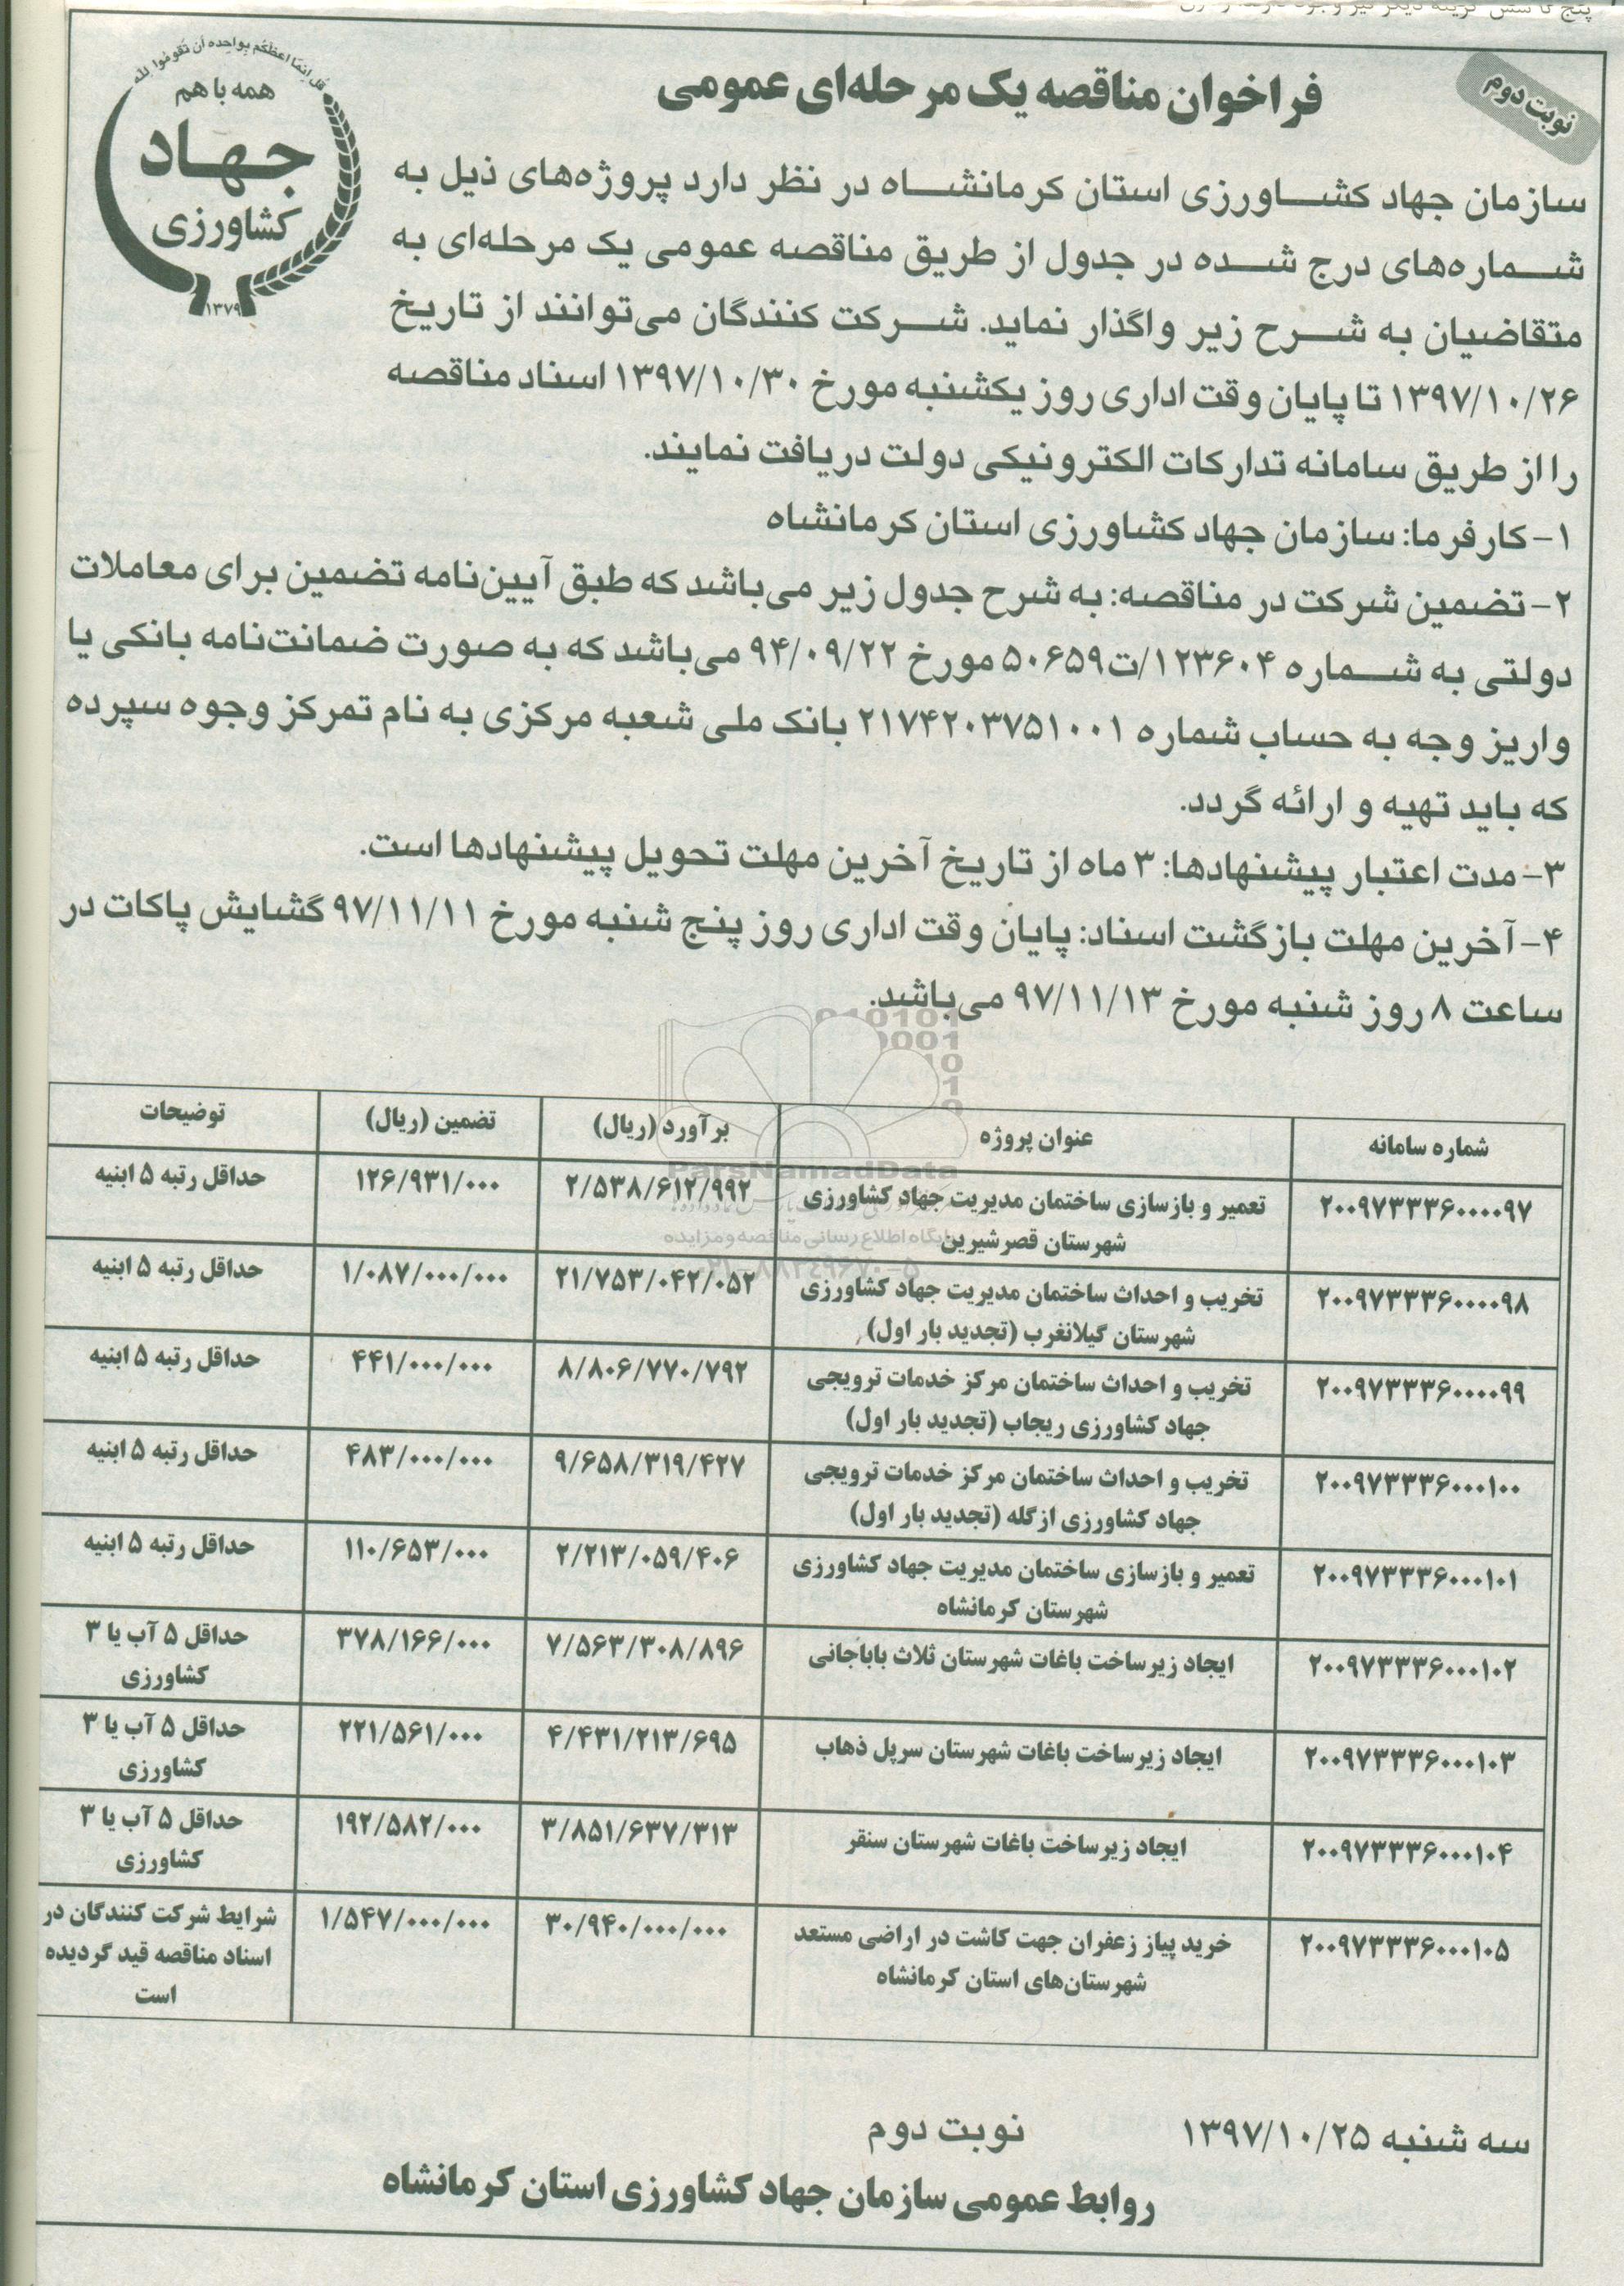 نوبت دوم
فراخوان مناقصه یک مرحله‌ای عمومی
قل انما اعظکم بواحده ان تقوموا لله
همه با هم
جهاد
کشاورزی
۱۳۷۹
سازمان جهاد کشاورزی استان کرمانشاه در نظر دارد پروژه‌های ذیل به
شماره‌های درج شده در جدول از طریق مناقصه عمومی یک مرحله‌ای به
متقاضیان به شرح زیر واگذار نماید. شرکت کنندگان می‌توانند از تاریخ
۱۳۹۷/۱۰/۲۶ تا پایان وقت اداری روز یکشنبه مورخ ۱۳۹۷/۱۰/۳۰ اسناد مناقصه
را از طریق سامانه تدارکات الکترونیکی دولت دریافت نمایند.
۱- کارفرما: سازمان جهاد کشاورزی استان کرمانشاه
۲- تضمین شرکت در مناقصه: به شرح جدول زیر می‌باشد که طبق آیین‌نامه تضمین برای معاملات
دولتی به شماره ۱۲۳۶۰۴/ت۵۰۶۵۹ مورخ ۹۴/۰۹/۲۲ می‌باشد که به صورت ضمانت‌نامه بانکی یا
واریز وجه به حساب شماره ۲۱۷۴۲۰۳۷۵۱۰۰۱ بانک ملی شعبه مرکزی به نام تمرکز وجوه سپرده
که باید تهیه و ارائه گردد.
۳- مدت اعتبار پیشنهادها: ۳ ماه از تاریخ آخرین مهلت تحویل پیشنهادها است.
۴- آخرین مهلت بازگشت اسناد: پایان وقت اداری روز پنج شنبه مورخ ۹۷/۱۱/۱۱ گشایش پاکات در
ساعت ۸ روز شنبه مورخ ۹۷/۱۱/۱۳ می‌باشد.
شماره سامانه عنوان پروژه برآورد (ریال) تضمین (ریال) توضیحات
۲۰۰۹۷۳۳۳۶۰۰۰۰۹۷ تعمیر و بازسازی ساختمان مدیریت جهاد کشاورزی ۲/۵۳۸/۶۱۲/۹۹۲ ۱۲۶/۹۳۱/۰۰۰ حداقل رتبه ۵ ابنیه
شهرستان قصرشیرین
۲۰۰۹۷۳۳۳۶۰۰۰۰۹۸ تخریب و احداث ساختمان مدیریت جهاد کشاورزی ۲۱/۷۵۳/۰۴۲/۰۵۲ ۱/۰۸۷/۰۰۰/۰۰۰ حداقل رتبه ۵ ابنیه
شهرستان گیلانغرب (تجدید بار اول)
۲۰۰۹۷۳۳۳۶۰۰۰۰۹۹ تخریب و احداث ساختمان مرکز خدمات ترویجی ۸/۸۰۶/۷۷۰/۷۹۲ ۴۴۱/۰۰۰/۰۰۰ حداقل رتبه ۵ ابنیه
جهاد کشاورزی ریجاب (تجدید بار اول)
۲۰۰۹۷۳۳۳۶۰۰۰۱۰۰ تخریب و احداث ساختمان مرکز خدمات ترویجی ۹/۶۵۸/۳۱۹/۴۲۷ ۴۸۳/۰۰۰/۰۰۰ حداقل رتبه ۵ ابنیه
جهاد کشاورزی ازگله (تجدید بار اول)
۲۰۰۹۷۳۳۳۶۰۰۰۱۰۱ تعمیر و بازسازی ساختمان مدیریت جهاد کشاورزی ۲/۲۱۳/۰۵۹/۴۰۶ ۱۱۰/۶۵۳/۰۰۰ حداقل رتبه ۵ ابنیه
شهرستان کرمانشاه
۲۰۰۹۷۳۳۳۶۰۰۰۱۰۲ ایجاد زیرساخت باغات شهرستان ثلاث باباجانی ۷/۵۶۳/۳۰۸/۸۹۶ ۳۷۸/۱۶۶/۰۰۰ حداقل ۵ آب یا ۳
کشاورزی
۲۰۰۹۷۳۳۳۶۰۰۰۱۰۳ ایجاد زیرساخت باغات شهرستان سرپل ذهاب ۴/۴۳۱/۲۱۳/۶۹۵ ۲۲۱/۵۶۱/۰۰۰ حداقل ۵ آب یا ۳
کشاورزی
۲۰۰۹۷۳۳۳۶۰۰۰۱۰۴ ایجاد زیرساخت باغات شهرستان سنقر ۳/۸۵۱/۶۳۷/۳۱۳ ۱۹۲/۵۸۲/۰۰۰ حداقل ۵ آب یا ۳
کشاورزی
۲۰۰۹۷۳۳۳۶۰۰۰۱۰۵ خرید پیاز زعفران جهت کاشت در اراضی مستعد ۳۰/۹۴۰/۰۰۰/۰۰۰ ۱/۵۴۷/۰۰۰/۰۰۰ شرایط شرکت کنندگان در
شهرستان‌های استان کرمانشاه اسناد مناقصه قید گردیده
است
ParsNamadData
پایگاه اطلاع رسانی مناقصه و مزایده
سه شنبه ۱۳۹۷/۱۰/۲۵ نوبت دوم
روابط عمومی سازمان جهاد کشاورزی استان کرمانشاه